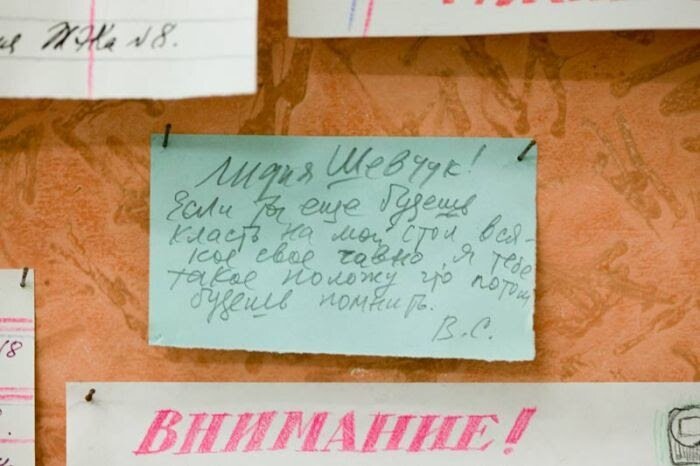 ЖЭКа №8.
Лидия Шевчук!
Если ты еще будешь
класть на мой стол вся-
кое свое гавно, я тебе
такое положу что потом
будешь помнить.
В.С.
№8
ВНИМАНИЕ!